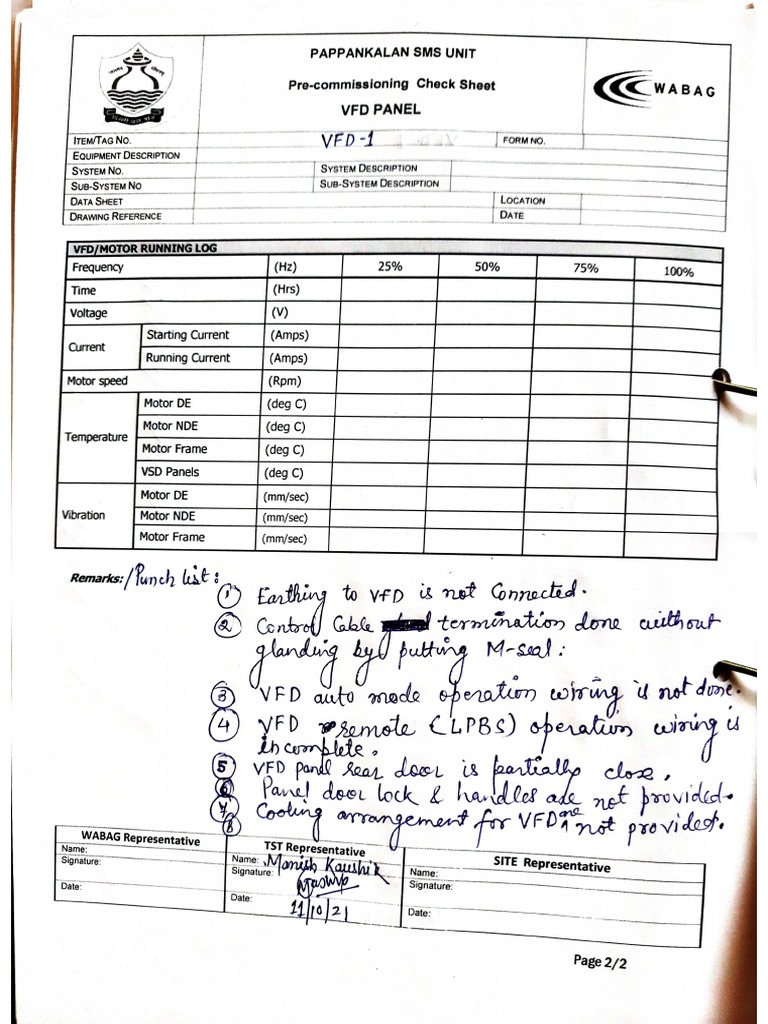 PAPPANKALAN SMS UNIT
Pre-commissioning Check Sheet
VFD PANEL
WABAG
ITEM/TAG NO. VFD-1 FORM NO.
EQUIPMENT DESCRIPTION
SYSTEM NO. SYSTEM DESCRIPTION
SUB-SYSTEM NO SUB-SYSTEM DESCRIPTION
DATA SHEET LOCATION
DRAWING REFERENCE DATE
VFD/MOTOR RUNNING LOG
Frequency (Hz) 25% 50% 75% 100%
Time (Hrs)
Voltage (V)
Current Starting Current (Amps)
Running Current (Amps)
Motor speed (Rpm)
Temperature Motor DE (deg C)
Motor NDE (deg C)
Motor Frame (deg C)
VSD Panels (deg C)
Vibration Motor DE (mm/sec)
Motor NDE (mm/sec)
Motor Frame (mm/sec)
Remarks: / Punch list :
1 Earthing to VFD is not Connected.
2 Control Cable termination done without
glanding by putting M-seal.
3 VFD auto mode operation wiring is not done.
4 VFD remote (LPBS) operation wiring is
incomplete.
5 VFD panel rear door is partially close.
6 Panel door lock & handles are not provided.
7 Cooling arrangement for VFD are not provided.
8
WABAG Representative TST Representative SITE Representative
Name: Name: Manish Kaushik Name:
Signature: Signature: Signature:
Date: Date: 11/10/21 Date:
Page 2/2